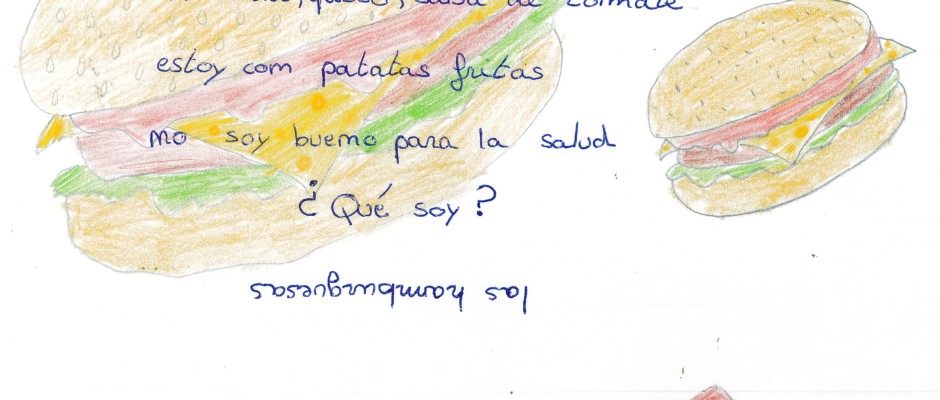 queso, salsa de tomate
estoy con patatas fritas
no soy bueno para la salud
¿Qué soy?
las hamburguesas